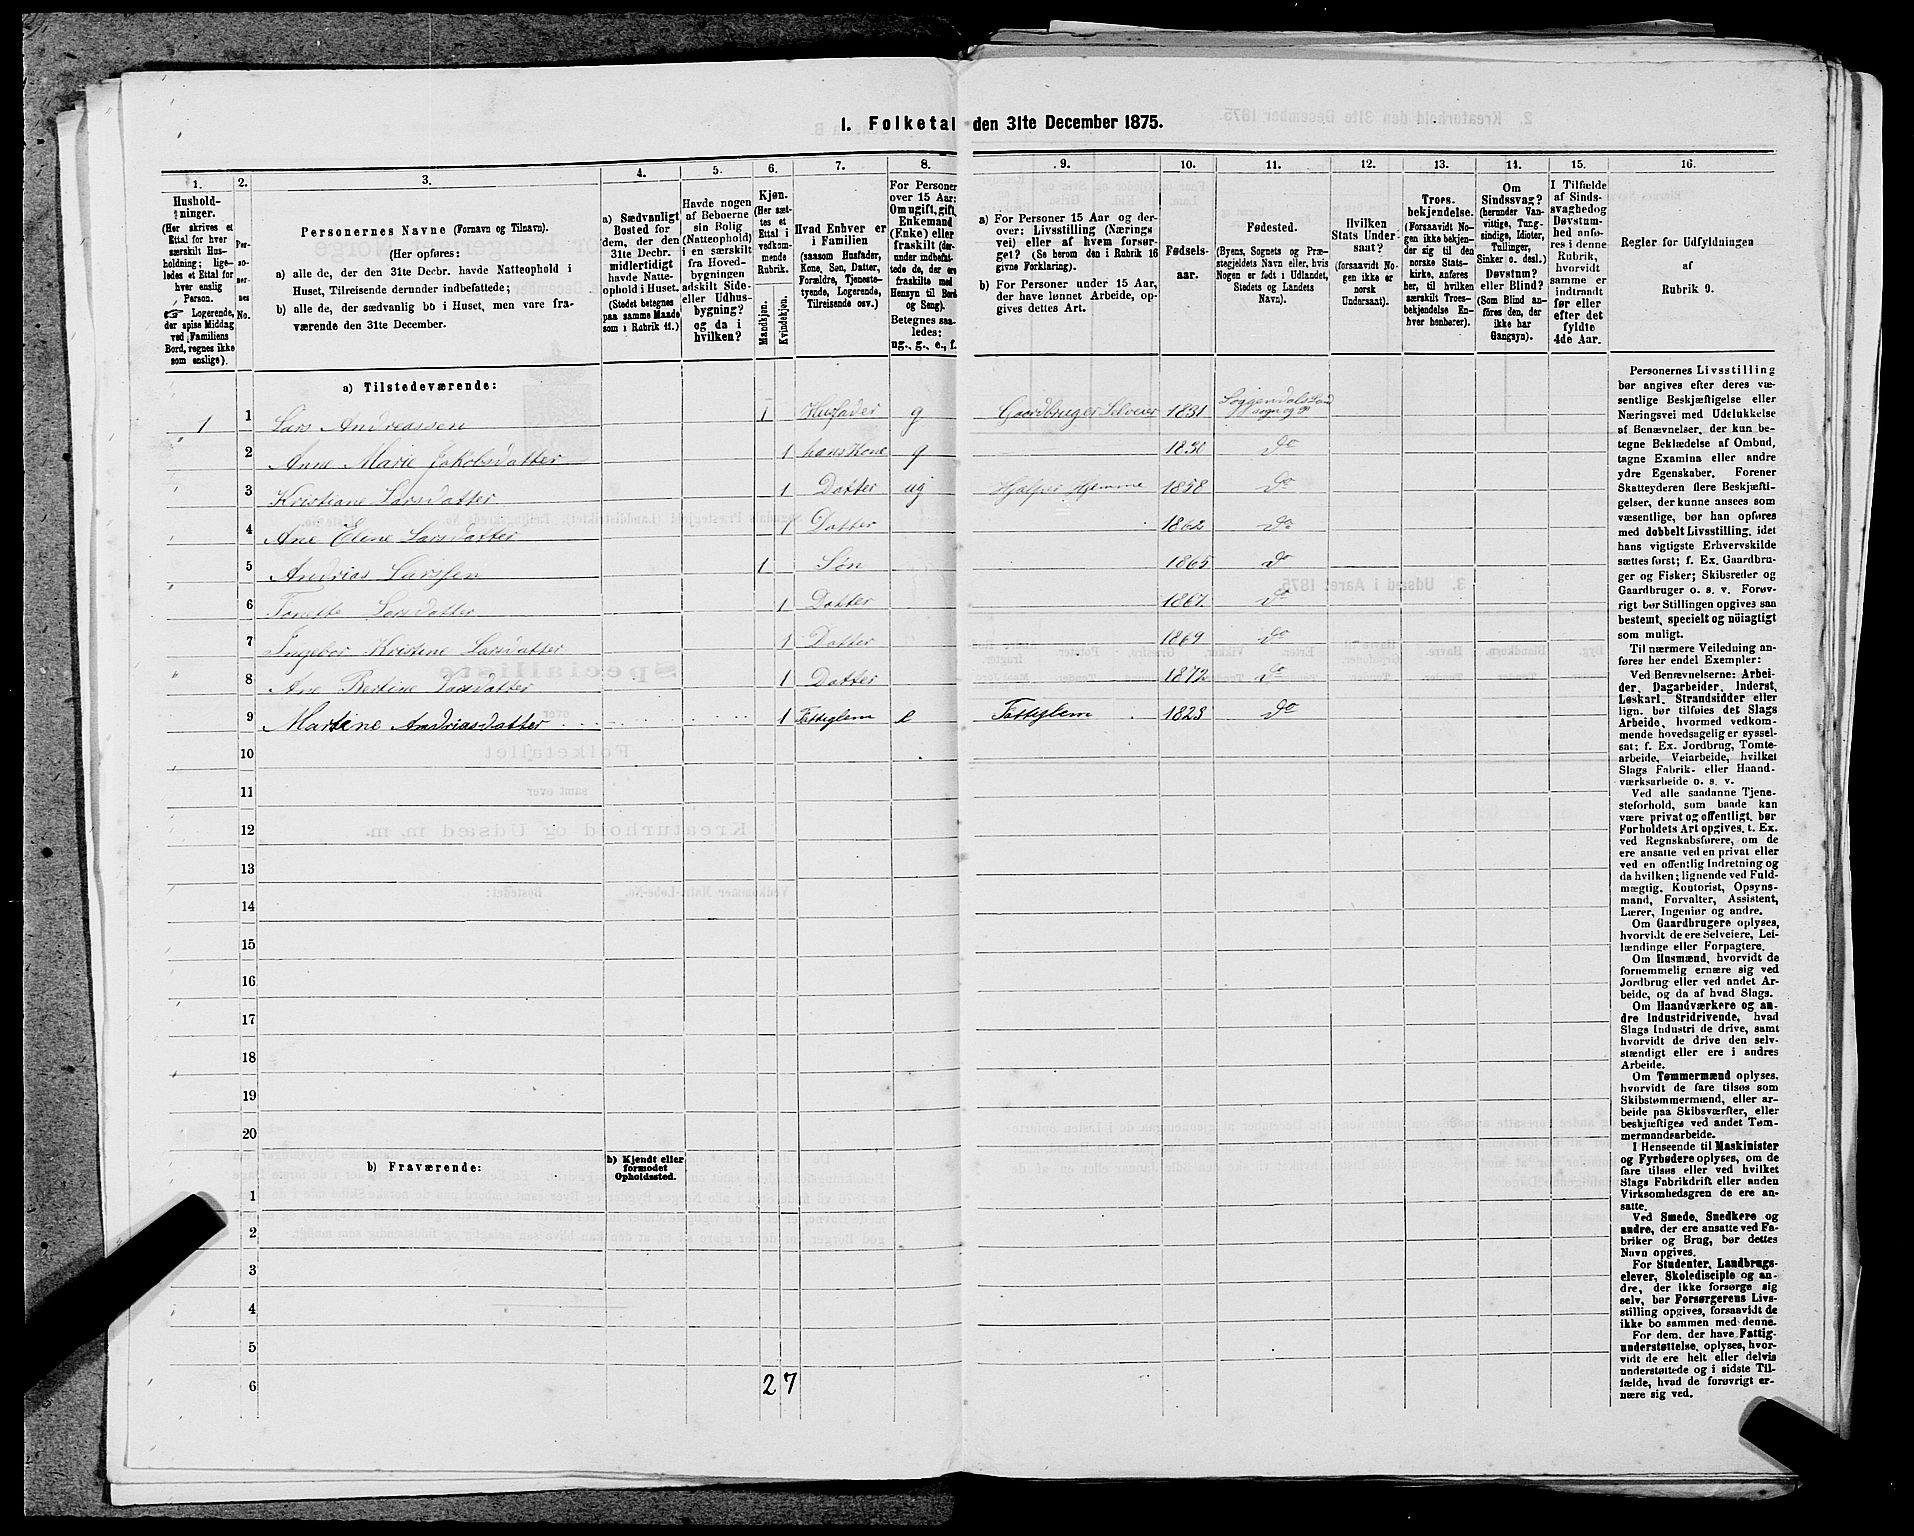 1. Folketal den 31te December 1875.
1. 2. 3. 4. 5. 6. 7. 8. 9. 10. 11. 12. 13. 14. 15. 16.
Hushold-
ninger.
(Her skrives et
Ettal for hver
særskilt Hus-
holdning; lige-
ledes et Ettal for
hver enslig
Person.
☞ Logerende,
der spise Middag
ved Familiens
Bord, regnes ikke
som enslige).
Per-
so-
ner-
nes
No.
Personernes Navne (Fornavn og Tilnavn).
(Her opføres:
a) alle de, der den 31te Decbr. havde Natteophold i
Huset, Tilreisende derunder indbefattede;
b) alle de, der sædvanlig bo i Huset, men vare fra-
værende den 31te December.
a) Sædvanligt
Bosted for
dem, der den
31te Decbr.
midlertidigt
havde Natte-
ophold i Huset.
(Stedet betegnes
paa samme Maade
som i Rubrik 11.)
Havde nogen
af Beboerne
sin Bolig
(Natteophold)
i en særskilt
fra Hoved-
bygningen
adskilt Side-
eller Udhus-
bygning?
og da i
hvilken?
Kjøn.
(Her sæt-
tes et
Ettal i
vedkom-
mende
Rubrik.
Mandkjøn.
Kvindekjøn.
Hvad Enhver er
i Familien
(saasom Husfader,
Kone, Søn, Datter,
Forældre, Tjeneste-
tyende, Logerende,
Tilreisende osv.)
For Personer
over 15 Aar:
Om ugift, gift,
Enkemand
(Enke) eller
fraskilt (der-
under indbefat-
tede de, der ere
fraskilte med
Hensyn til Bord
og Seng).
Betegnes saa-
ledes:
ug., g., e., f.
a) For Personer 15 Aar og der-
over: Livsstilling (Nærings
vei) eller af hvem forsør-
get? (Se herom den i Rubrik 16
givne Forklaring).
b) For Personer under 15 Aar,
der have lønnet Arbeide, op-
gives dettes Art.
Fødsels-
aar.
Fødested.
(Byens, Sognets og Præ-
stegjeldets Navn eller, hvis
Nogen er født i Udlandet,
Stedets og Landets
Navn).
Hvilken
Stats Under-
saat?
(forsaavidt No-
gen ikke er
norsk
Undersaat).
Troes-
bekjendelse.
(Forsaavidt No-
gen ikke bekjen-
der sig til den
norske Stats-
kirke, anføres
her, til hvilken
særskilt Troes-
bekjendelse En-
hver henhører).
Om
Sindssvag?
(herunder Van-
vittige, Tung-
sindige, Idioter,
Tullinger,
Sinker o. desl.)
Døvstum?
eller Blind?
(Som Blind an-
føres den, der
ikke har
Gangsyn).
I Tilfælde
af Sinds-
svaghed og
Døvstum-
hed anfø-
res i denne
Rubrik,
hvorvidt
samme er
indtraadt
før eller
efter det
fyldte
4de Aar.
Regler for Udfyldningen
af
Rubrik 9.
a) Tilstedeværende:
1 1 Lars Andreassen 1 Husfader g Gaardbruger Selveier 1831 Soggendals Land sogn og P
" 2 Anne Marie Jakobsdatter 1 hans Kone g 1830 do
3 Kristiane Larsdatter 1 Datter ug Hjelper Hjemme 1858 do
4 Ane Elene Larsdatter 1 Datter 1862 do
5 Andrias Larssen 1 Søn 1865 do
6 Tonette Larsdatter 1 Datter 1867 do
7 Ingebor Kristine Larsdatter 1 Datter 1869 do
8 Ane Bertine Larsdatter 1 Datter 1872 do
9 Martine Andriasdatter 1 Fattiglem e Fattiglem 1823 do
10
11
12
13
14
15
16
17
18
19
20
b) Fraværende:
b) Kjendt eller
formodet
Opholdssted.
1
2
3
4
5
6 2 7
Personernes Livsstilling
bør angives efter deres væ-
sentlige Beskjæftigelse eller
Næringsvei med Udelukkelse
af Benævnelser, der kun be-
tegne Beklædelse af Ombud,
tagne Examina eller andre
ydre Egenskaber. Forener
Skatteyderen flere Beskjæfti-
gelser, der kunne ansees som
væsentlige, bør han opføres
med dobbelt Livsstilling, idet
hans vigtigste Erhvervskilde
sættes først; f. Ex. Gaardbru-
ger og Fisker; Skibsreder og
Gaardbruger o. s. v. Forøv-
rigt bør Stillingen opgives saa
bestemt, specielt og nöiagtigt
som muligt.
Til nærmere Veiledning an-
føres her endel Exempler:
Ved Benævnelserne: Arbei-
der, Dagarbeider, Inderst,
Løskarl, Strandsidder eller
lign. bør tilføies det Slags
Arbeide, hvormed vedkom-
mende hovedsagelig er syssel-
sat; f. Ex. Jordbrug, Tomte-
arbeide, Veiarbeide, hvilket
Slags Fabrik- eller Haand-
værksarbeide o. s. v.
Ved alle saadanne Tjene-
steforhold, som baade kan
være privat og offentligt, bør
Forholdets Art opgives, t. Ex.
ved Regnskabsførere, om de
ere ansatte ved en privat eller
ved en offentlig Indretning og
da hvilken; lignende ved Fuld-
mægtig, Kontorist, Opsyns-
mand, Forvalter, Assistent,
Lærer, Ingeniør og andre.
Om Gaardbrugere oplyses,
hvorvidt de ere Selveiere, Lei-
lændinge eller Forpagtere.
Om Husmænd, hvorvidt de
fornemmelig ernære sig ved
Jordbrug eller ved andet Ar-
beide, og da af hvad Slags.
Om Haandværkere og an-
dre Industridrivende, hvad
Slags Industri de drive, samt
hvorvidt de drive den selv-
stændigt eller ere i andres
Arbeide.
Om Tømmermænd oplyses,
hvorvidt de fare tilsøs som
Skibstømmermænd, eller ar-
beide paa Skibsværfter, eller
beskjæftiges ved andet Tøm-
mermandsarbeide.
I Henseende til Maskinister
og Fyrbødere oplyses, om de
fare tilsøs eller ved hvilket
Slags Fabrikdrift eller anden
Virksomhedsgren de ere an-
satte.
Ved Smede, Snedkere og
andre, der ere ansatte ved Fa-
briker og Brug, bør dettes
Navn opgives.
For Studenter, Landbrugs-
elever, Skoledisciple og an-
dre, der ikke forsørge sig
selv, bør Forsørgerens Livs-
stilling opgives, forsaavidt de
ikke bo sammen med denne.
For dem, der have Fattig-
understøttelse, oplyses, hvor-
vidt de ere helt eller delvis
understøttede og i sidste Til-
fælde, hvad de forøvrigt er-
nære sig ved.